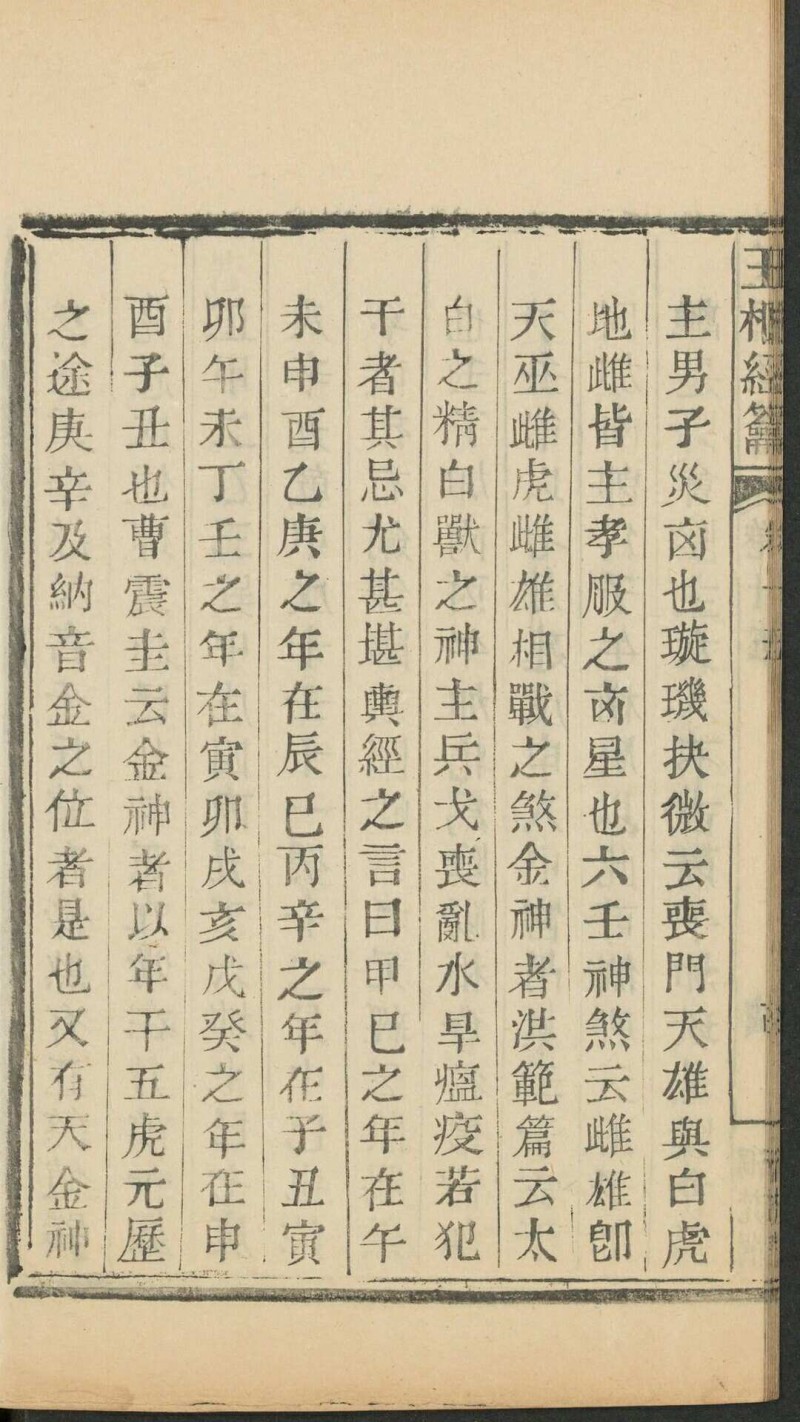 主男子災㐫也璇璣抉微云喪門天雄與白虎
地雌皆主孝服之㐫星也六壬神煞云雌雄卽
天巫雌虎雌雄相戰之煞金神者洪範篇云太
白之精白獸之神主兵戈喪亂水旱瘟疫若犯
干者其忌尤甚堪輿經之言曰甲巳之年在午
未申酉乙庚之年在辰巳丙辛之年在子丑寅
卯午未丁壬之年在寅卯戌亥戊癸之年在申
酉子丑也曹震圭云金神者以年干五虎元歷
之途庚辛及納音金之位者是也又有天金神